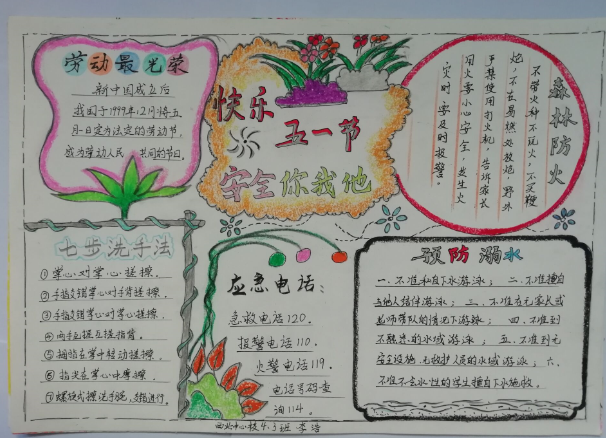 劳动最光荣
新中国成立后
我国于1949年12月将五
月一日定为法定的劳动节,
成为劳动人民 共同的节日。
快乐
五一节
安全你我他
森林防火
不带火种不玩火,不买鞭
炮,不在易燃处放炮,野外
严禁使用打火机,告诉家长
用火要小心安全,发生火
灾时,要及时报警。
七步洗手法
①掌心对掌心搓擦,
②手指交错掌心对手背搓擦,
③手指交错掌心对掌心搓擦,
④两手互握互搓指背,
⑤拇指在掌中转动搓擦,
⑥指尖在掌心中摩擦,
应急电话:
急救电话120.
报警电话110.
火警电话119.
电话号码查
询114.
预防溺水
一、不准私自下水游泳;二、不准擅自
与他人结伴游泳;三、不准在无家长或
老师带队的情况下游泳;四、不准到
不熟悉的水域游泳;五、不准到无
安全设施、无救护人员的水域游泳;六、
不准不会水性的学生擅自下水施救。
4.3班 李浩